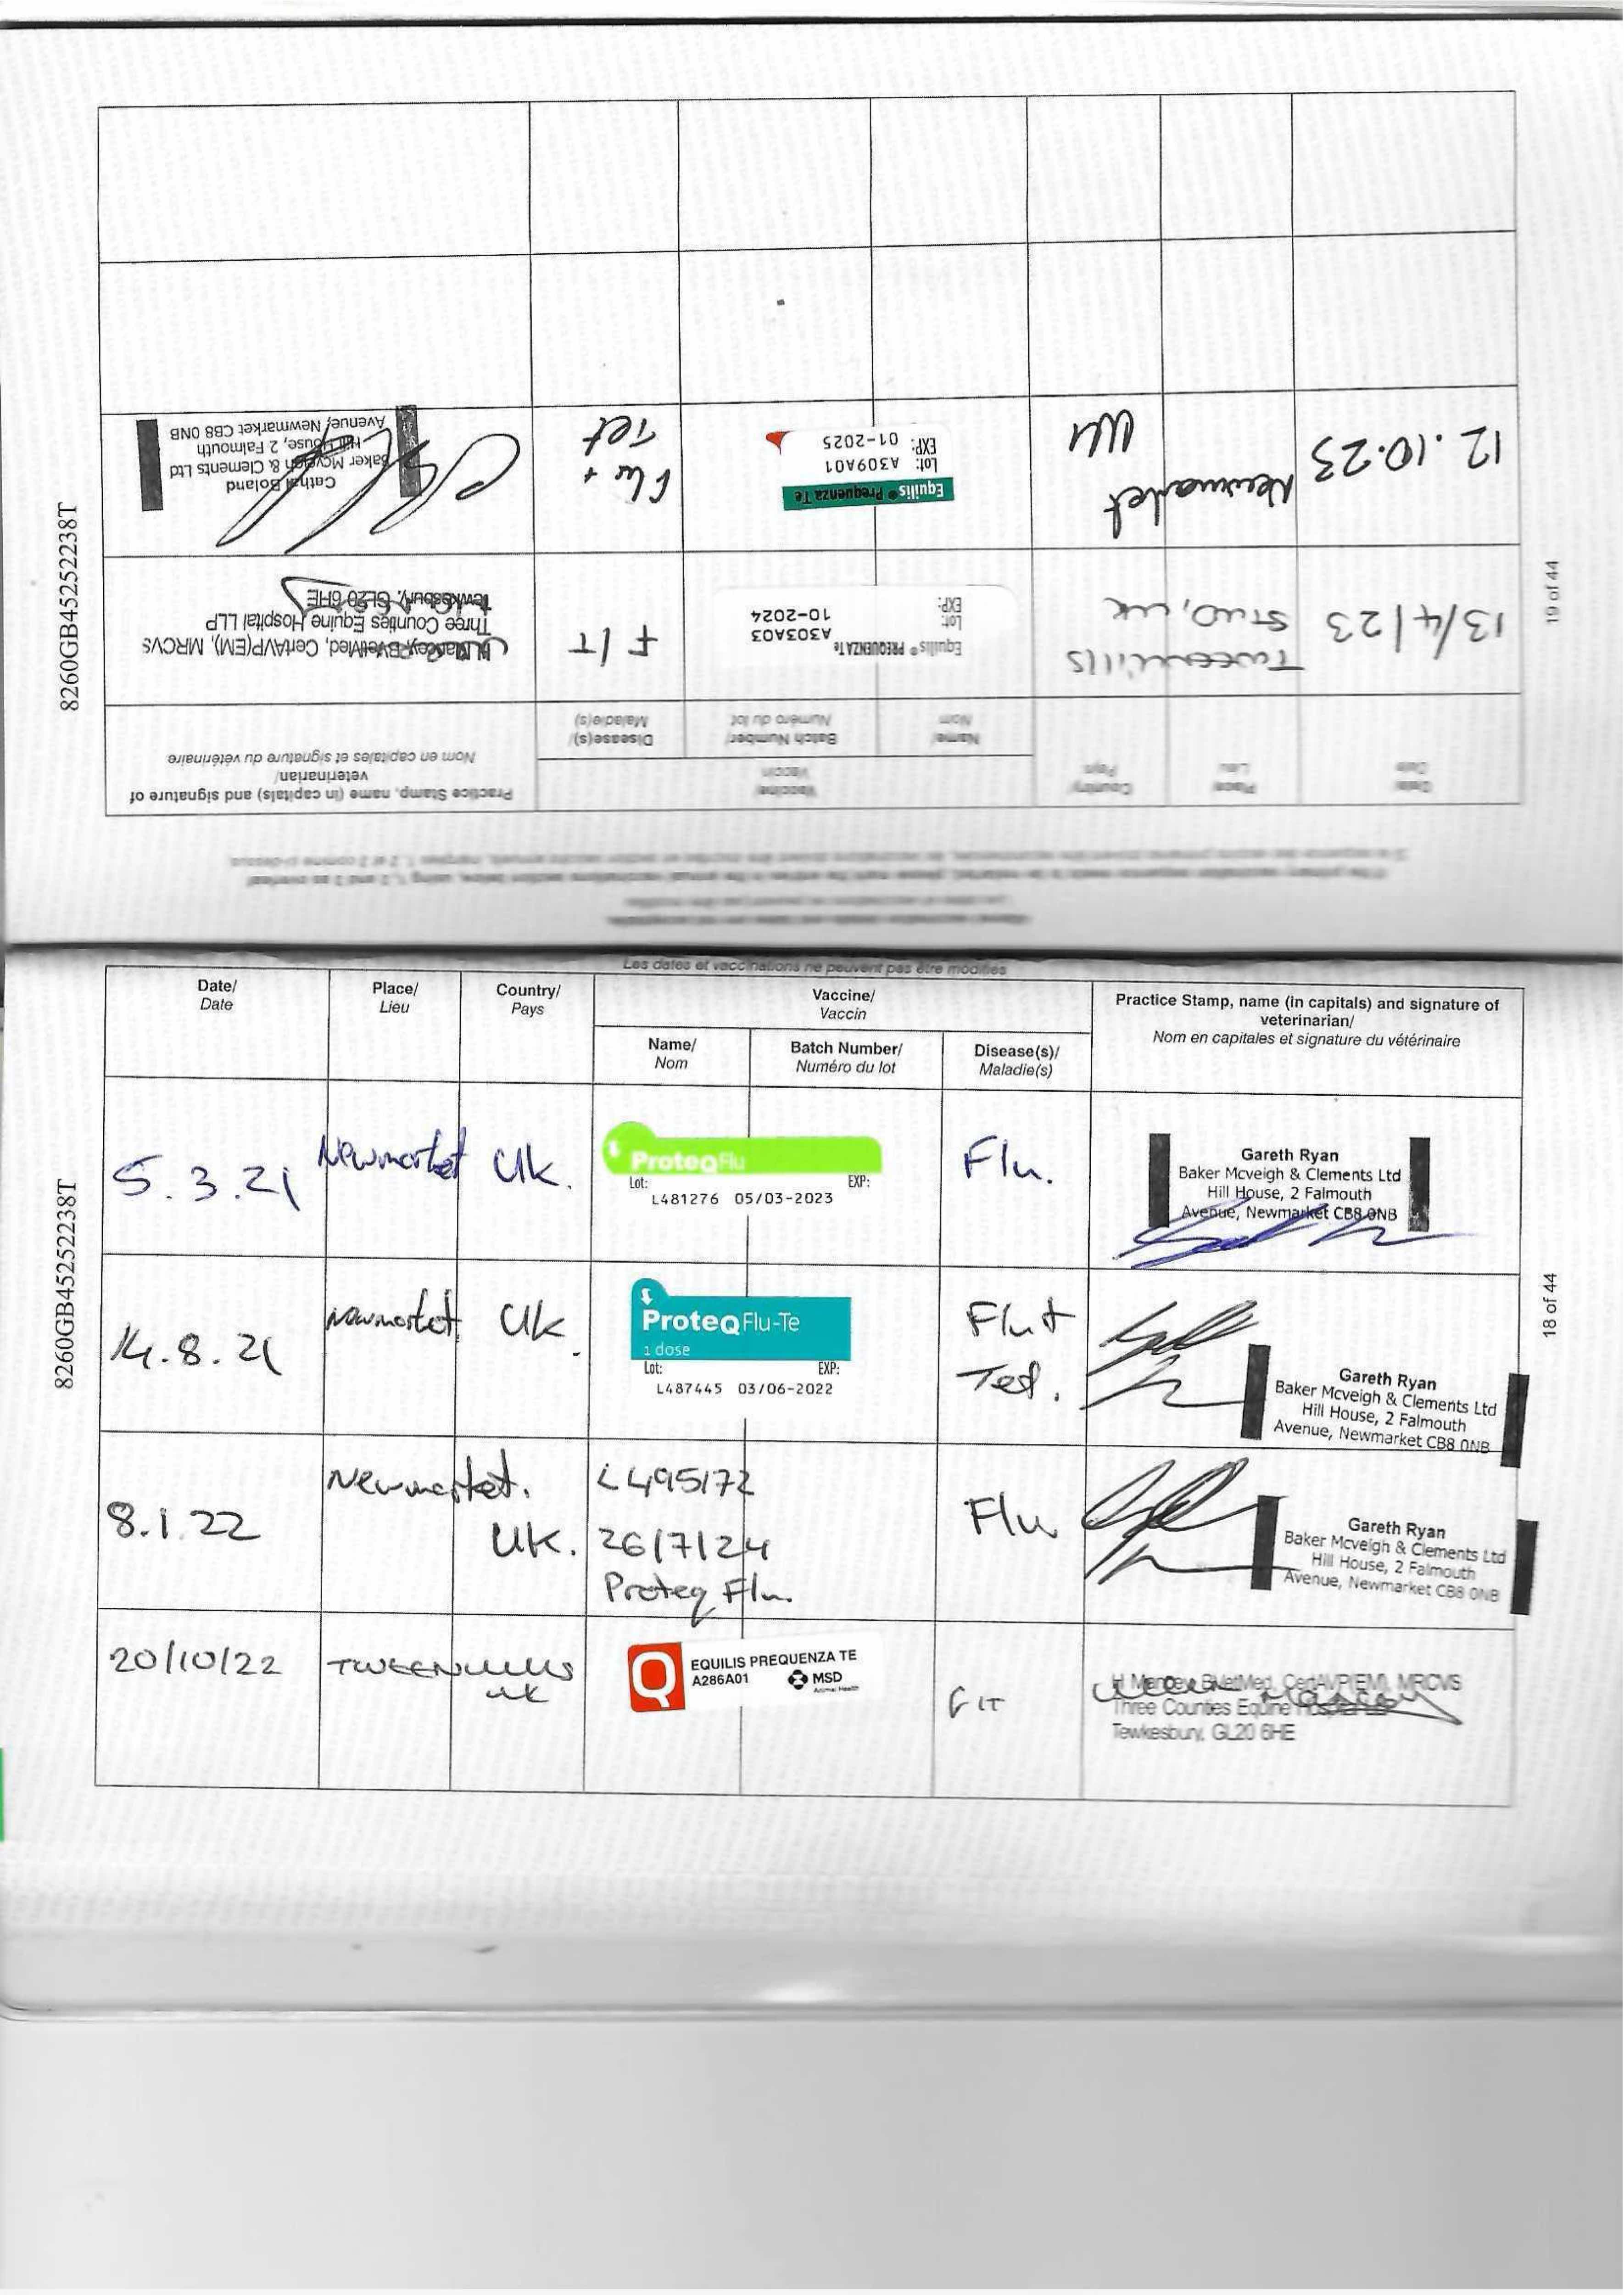 8260GB45252238T
19 of 44
Date/
Date
Place/
Lieu
Country/
Pays
Vaccine/
Vaccin
Name/
Nom
Batch Number/
Numéro du lot
Disease(s)/
Maladie(s)
Practice Stamp, name (in capitals) and signature of
veterinarian/
Nom en capitales et signature du vétérinaire
13/4/23
Tweenhills
STUD, UK
Equilis® PREQUENZA Te
Lot: A303A03
EXP: 10-2024
F/T
Mancey, BVetMed, CertAVP(EM), MRCVS
Three Counties Equine Hospital LLP
Tewkesbury, GL20 6HE
12.10.23
Newmarket
UK
Equilis® Prequenza Te
Lot: A309A01
EXP: 01-2025
Flu +
Tet
Cathal Boland
Baker Mcveigh & Clements Ltd
Hill House, 2 Falmouth
Avenue, Newmarket CB8 0NB
Les dates et vaccinations ne peuvent pas être modifiés
Date/
Date
Place/
Lieu
Country/
Pays
Vaccine/
Vaccin
Name/
Nom
Batch Number/
Numéro du lot
Disease(s)/
Maladie(s)
Practice Stamp, name (in capitals) and signature of
veterinarian/
Nom en capitales et signature du vétérinaire
5.3.21
Newmarket
UK.
ProteqFlu
Lot: EXP:
L481276 05/03-2023
Flu.
Gareth Ryan
Baker Mcveigh & Clements Ltd
Hill House, 2 Falmouth
Avenue, Newmarket CB8 0NB
14.8.21
Newmarket
UK.
ProteqFlu-Te
1 dose
Lot: EXP:
L487445 03/06-2022
Flu +
Tet.
Gareth Ryan
Baker Mcveigh & Clements Ltd
Hill House, 2 Falmouth
Avenue, Newmarket CB8 0NB
8.1.22
Newmarket.
UK.
L495172
26/7/24
Proteq Flu.
Flu
Gareth Ryan
Baker Mcveigh & Clements Ltd
Hill House, 2 Falmouth
Avenue, Newmarket CB8 0NB
20/10/22
TWEENHILLS
UK
Q
EQUILIS PREQUENZA TE
A286A01
MSD
Animal Health
F/T
H Mancey BVetMed, CertAVP(EM), MRCVS
Three Counties Equine Hospital
Tewkesbury, GL20 6HE
8260GB45252238T
18 of 44